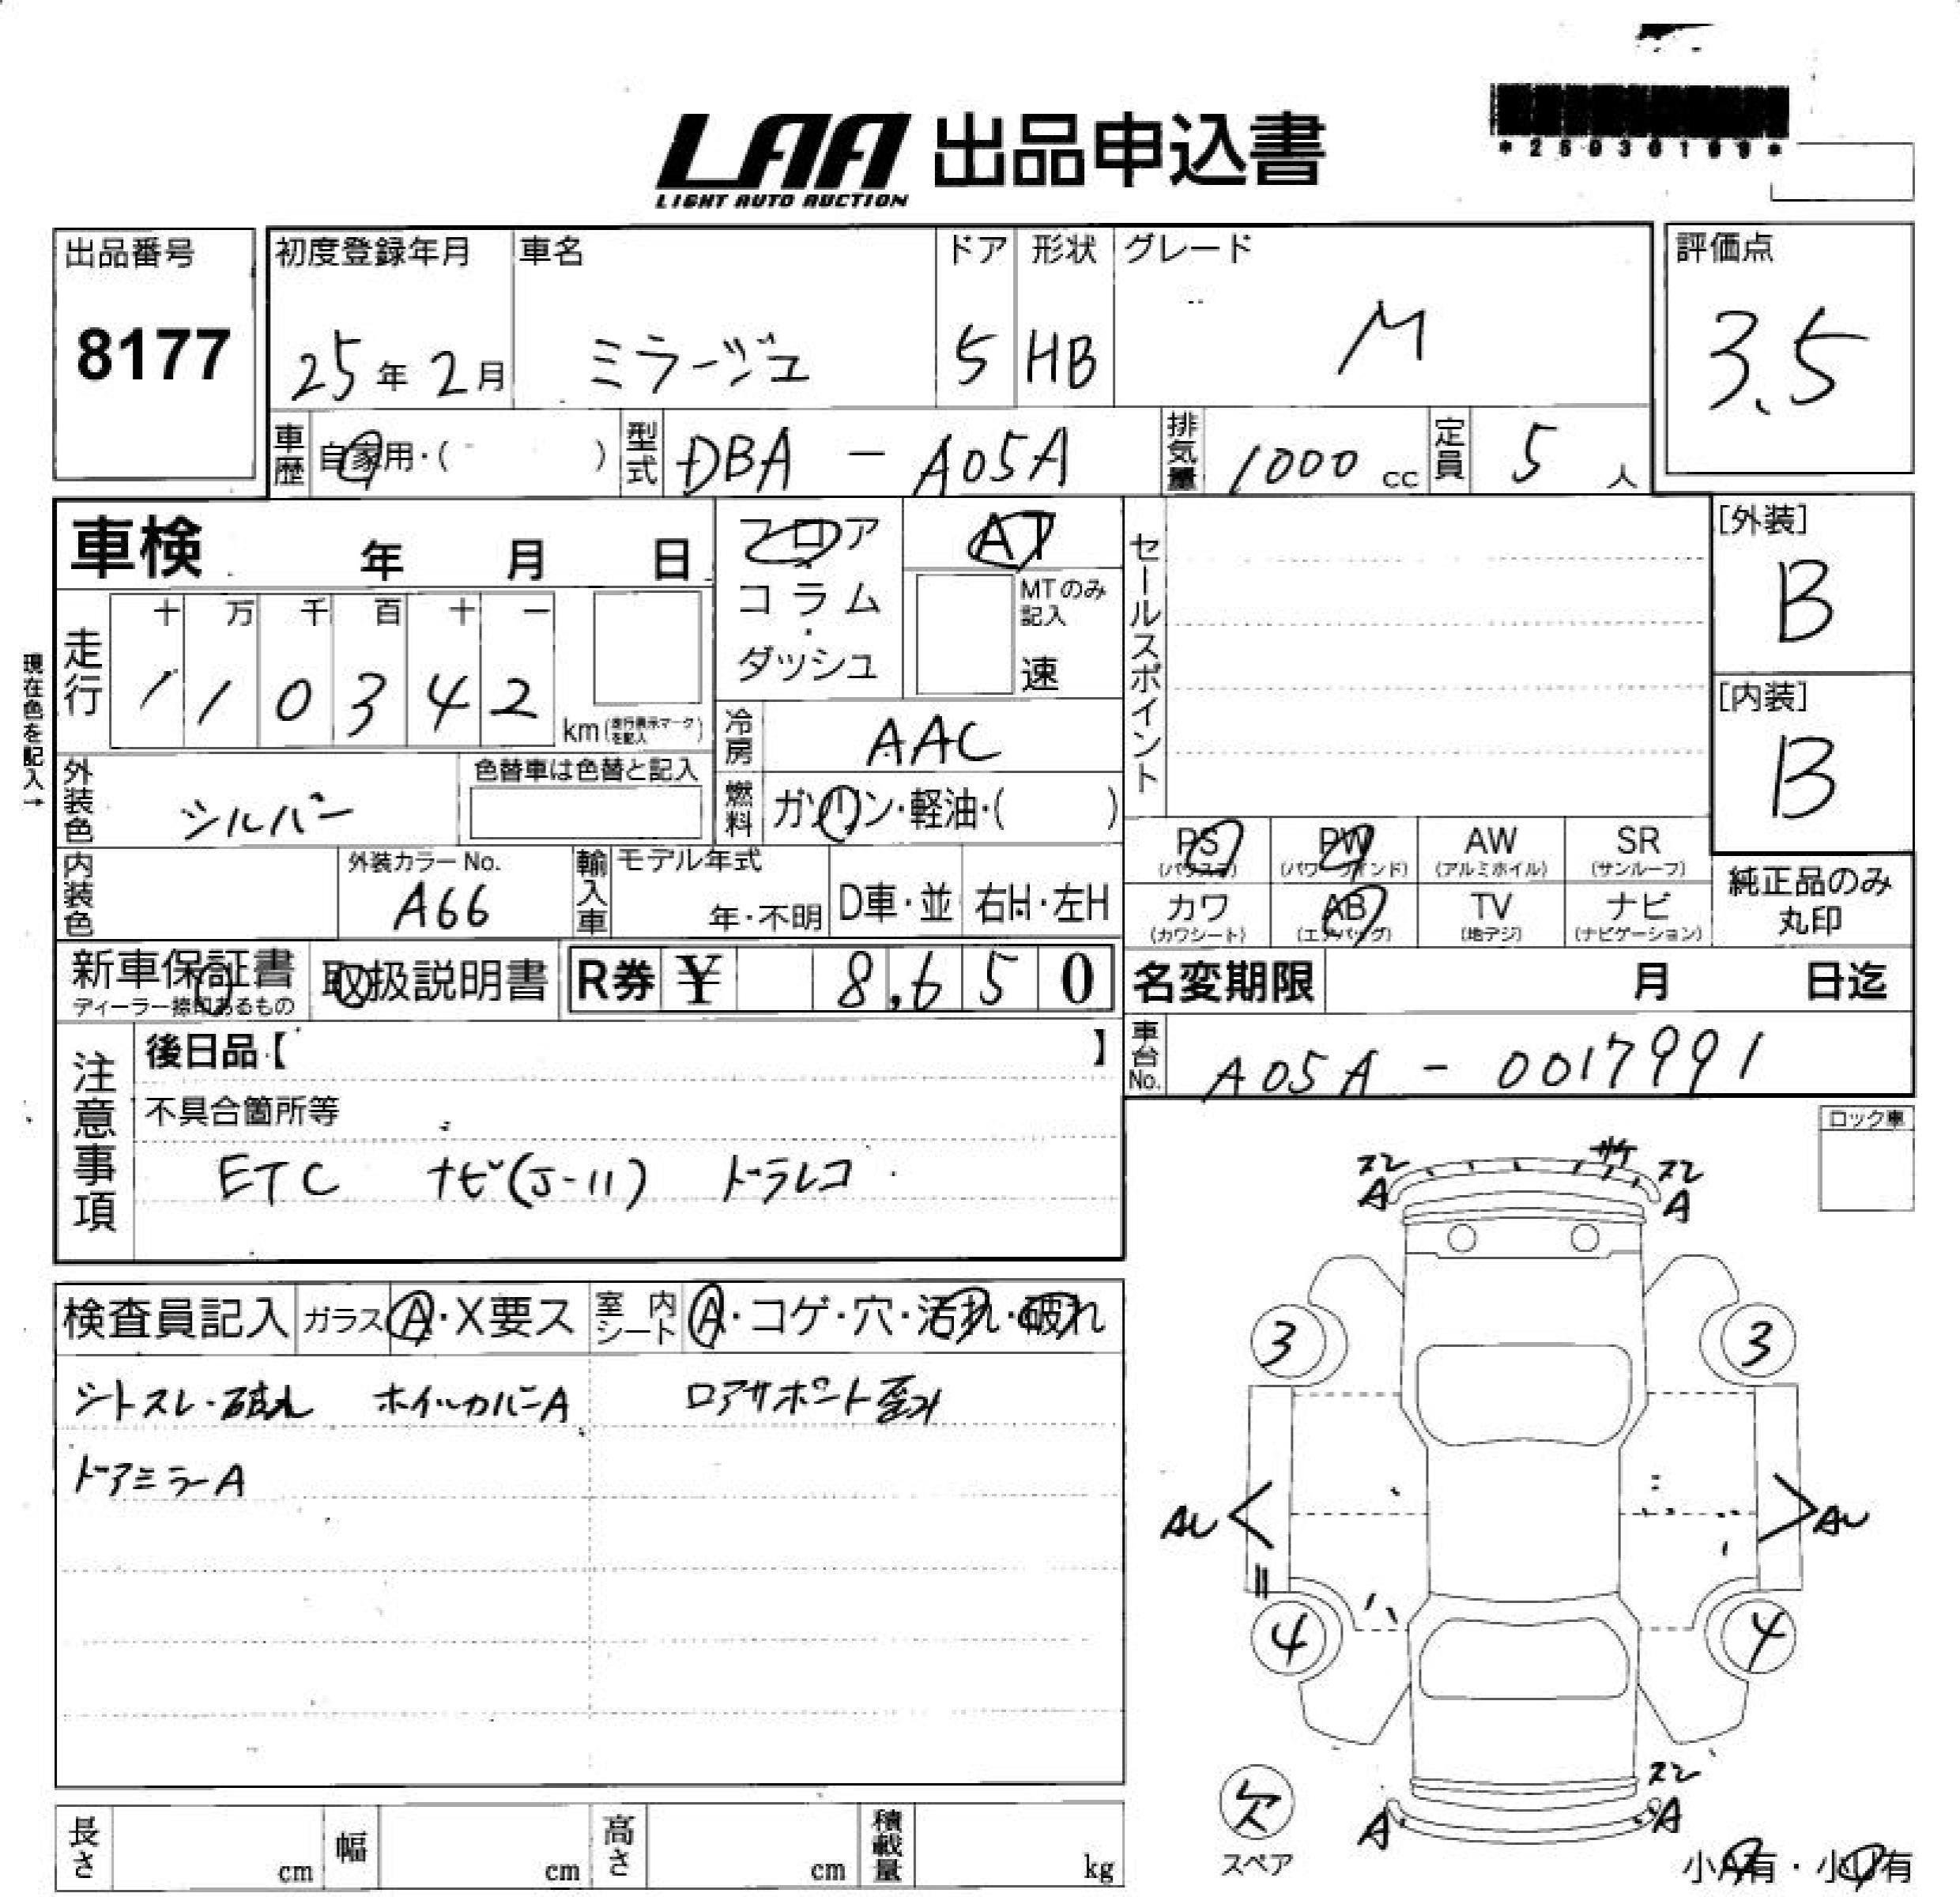 LAA 出品申込書
LIGHT AUTO AUCTION
出品番号
8177
初度登録年月
25年 2月
車名
ミラージュ
ドア
5
形状
HB
グレード
M
評価点
3.5
車歴
自家用・( )
型式
DBA - A05A
排気量
1000 cc
定員
5 人
車検 年 月 日
現在色を記入→
走行
十 万 千 百 十 一
1 1 0 3 4 2
km(走行表示マークを記入)
フロア
コラム
・
ダッシュ
AT
MTのみ
記入
速
冷房
AAC
燃料
ガソリン・軽油・( )
外装色
シルバー
色替車は色替と記入
内装色
外装カラーNo.
A66
輸入車
モデル年式
年・不明
D車・並
右H・左H
セールスポイント
[外装]
B
[内装]
B
PS
(パワステ)
PW
(パワーウインド)
AW
(アルミホイル)
SR
(サンルーフ)
カワ
(カワシート)
AB
(エアバッグ)
TV
(地デジ)
ナビ
(ナビゲーション)
純正品のみ
丸印
新車保証書
ディーラー捺印あるもの
取扱説明書
R券 ¥ 8,650
名変期限 月 日迄
車台No.
A05A - 0017991
注意事項
後日品【 】
不具合箇所等
ETC ナビ(J-11) ドラレコ
ロック車
検査員記入
ガラス
A・X要ス
室内シート
A・コゲ・穴・汚れ・破れ
シートスレ・破れ ホイルカバーA ロアサポート歪み
ドアミラーA
スレ
A
サケ
スレ
A
3
3
AU
AU
4
4
欠
スペア
A
スレ
A
小A有・小U有
長さ cm
幅 cm
高さ cm
積載量 kg